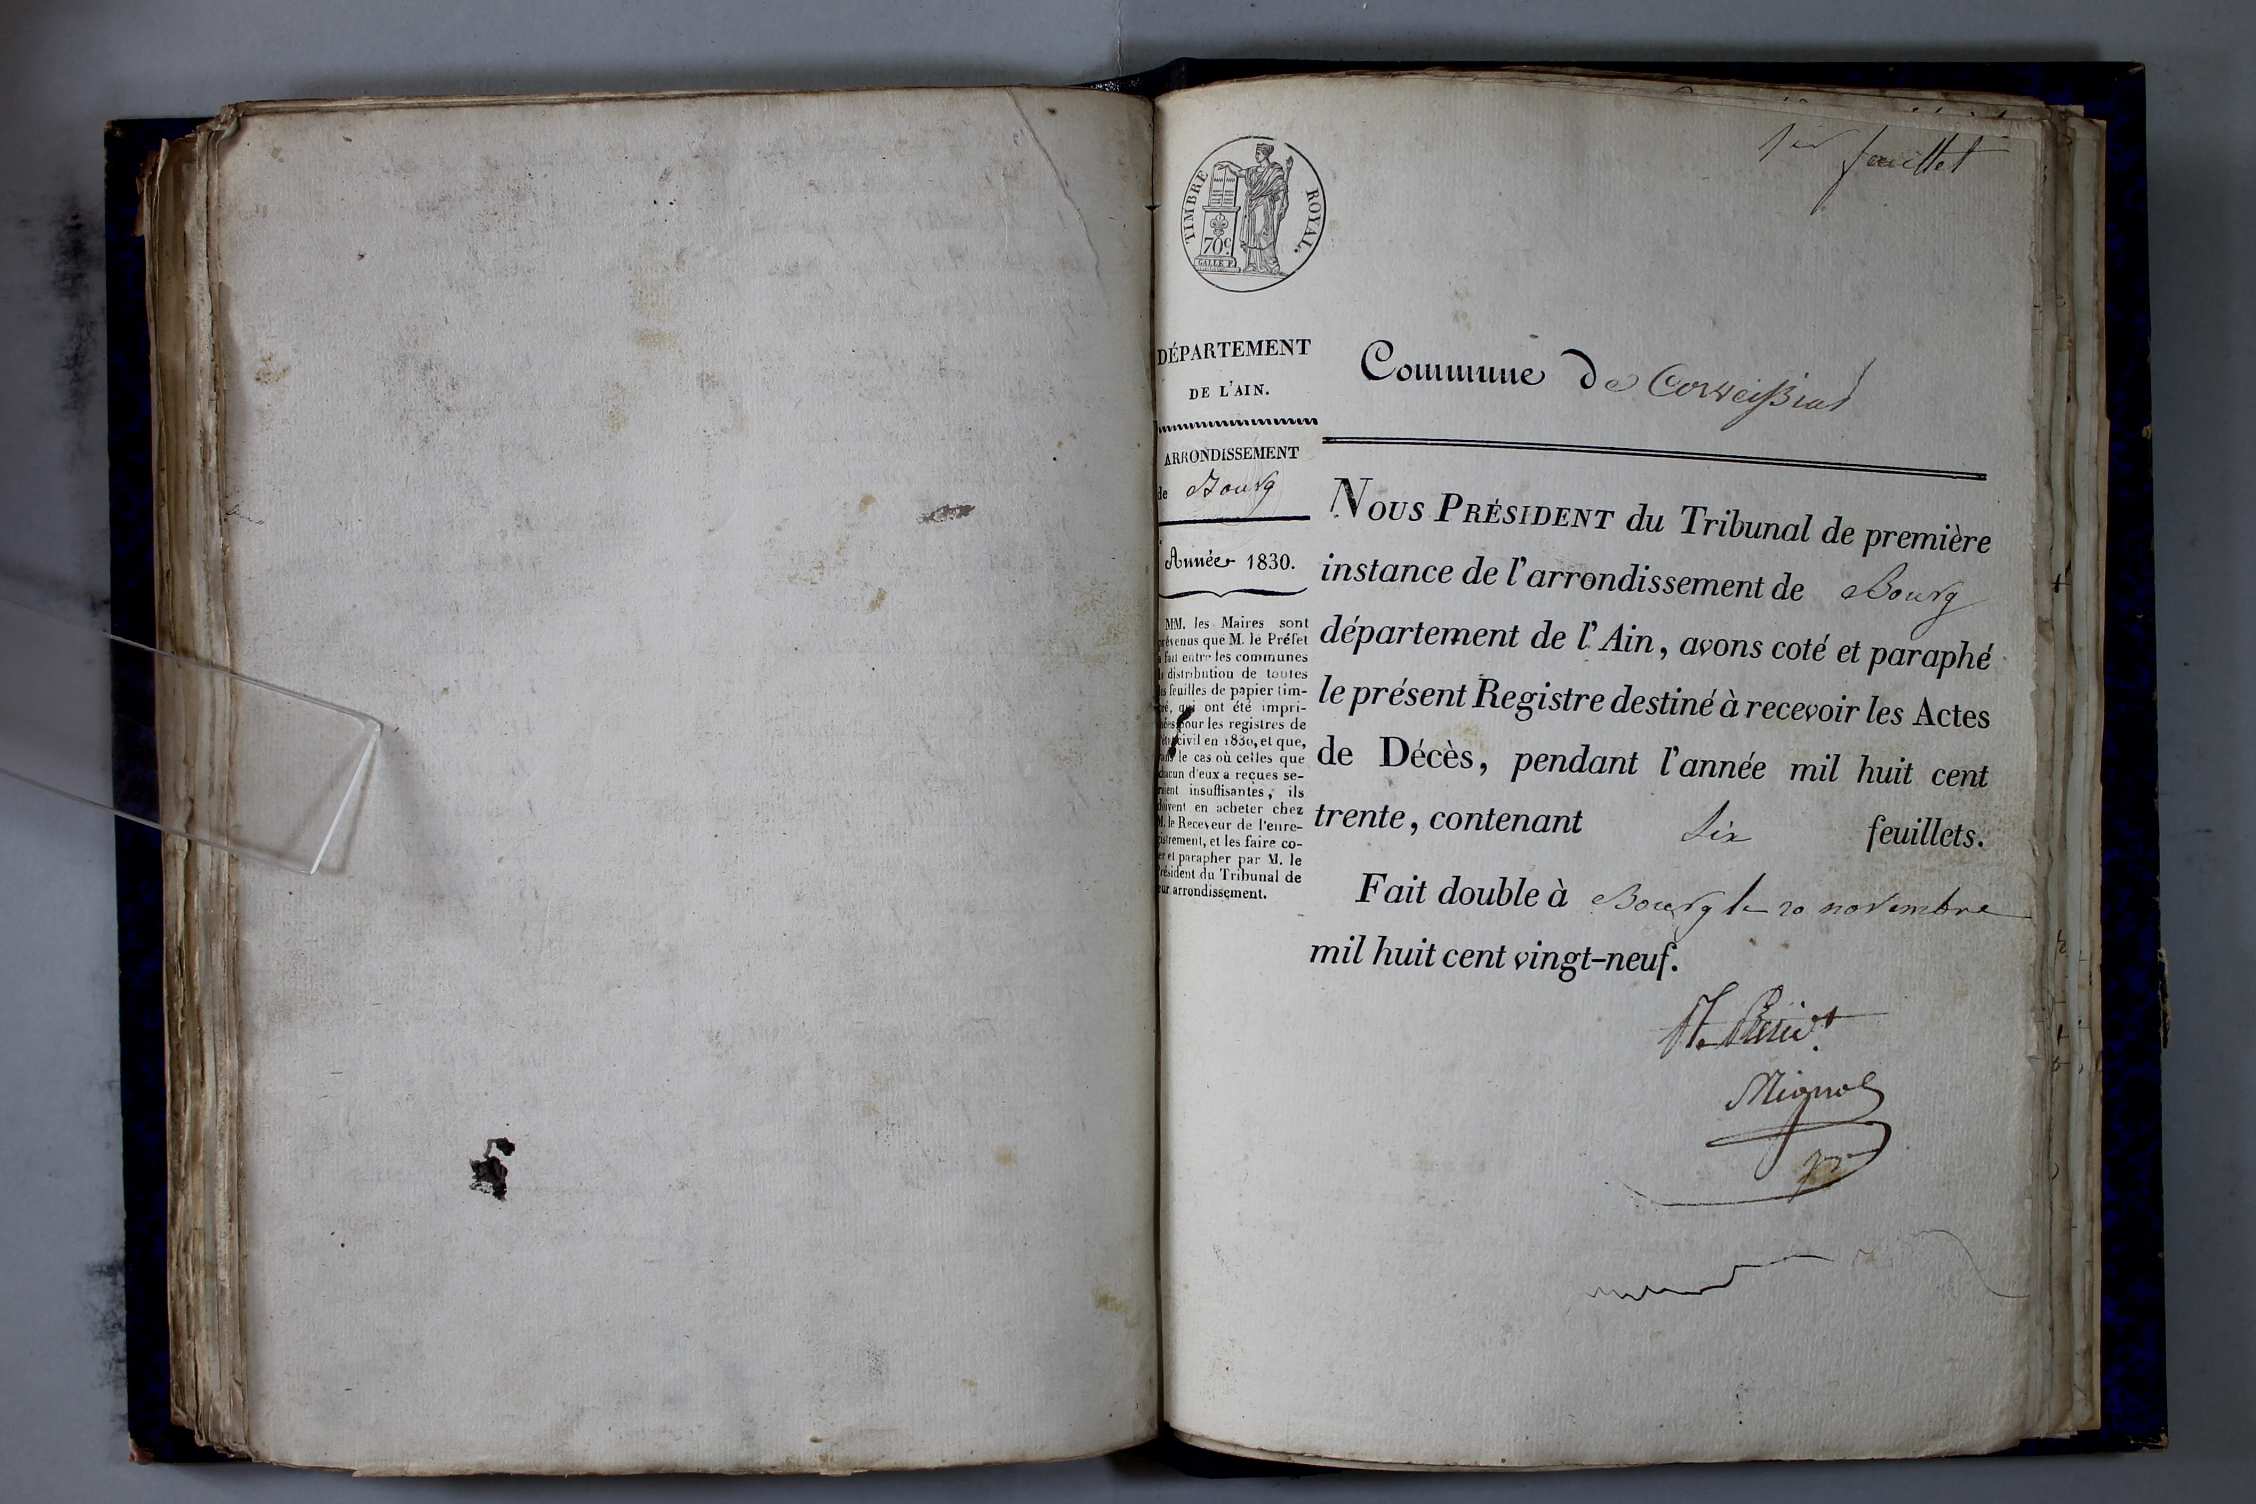 1er feuillet
TIMBRE ROYAL.
70c.
GALLE F.
DÉPARTEMENT
DE L'AIN.
ARRONDISSEMENT
de Bourg
Année 1830.
MM. les Maires sont
prévenus que M. le Préfet
a fait entre les communes
la distribution de toutes
les feuilles de papier tim-
bré, qui ont été impri-
mées pour les registres de
l'état civil en 1830, et que,
dans le cas où celles que
chacun d'eux a reçues se-
raient insuffisantes, ils
doivent en acheter chez
M. le Receveur de l'enre-
gistrement, et les faire co-
ter et parapher par M. le
Président du Tribunal de
leur arrondissement.
Commune de Corveissiat
NOUS PRÉSIDENT du Tribunal de première
instance de l'arrondissement de Bourg
département de l'Ain, avons coté et paraphé
le présent Registre destiné à recevoir les Actes
de Décès, pendant l'année mil huit cent
trente, contenant Six feuillets.
Fait double à Bourg le 20 novembre
mil huit cent vingt-neuf.